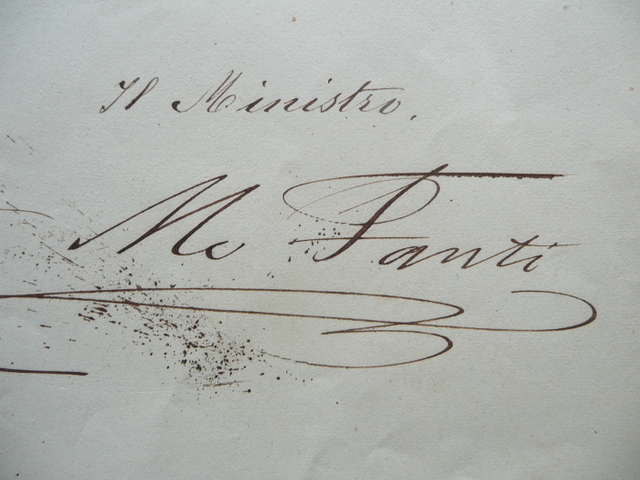 Il Ministro.
M. Fanti